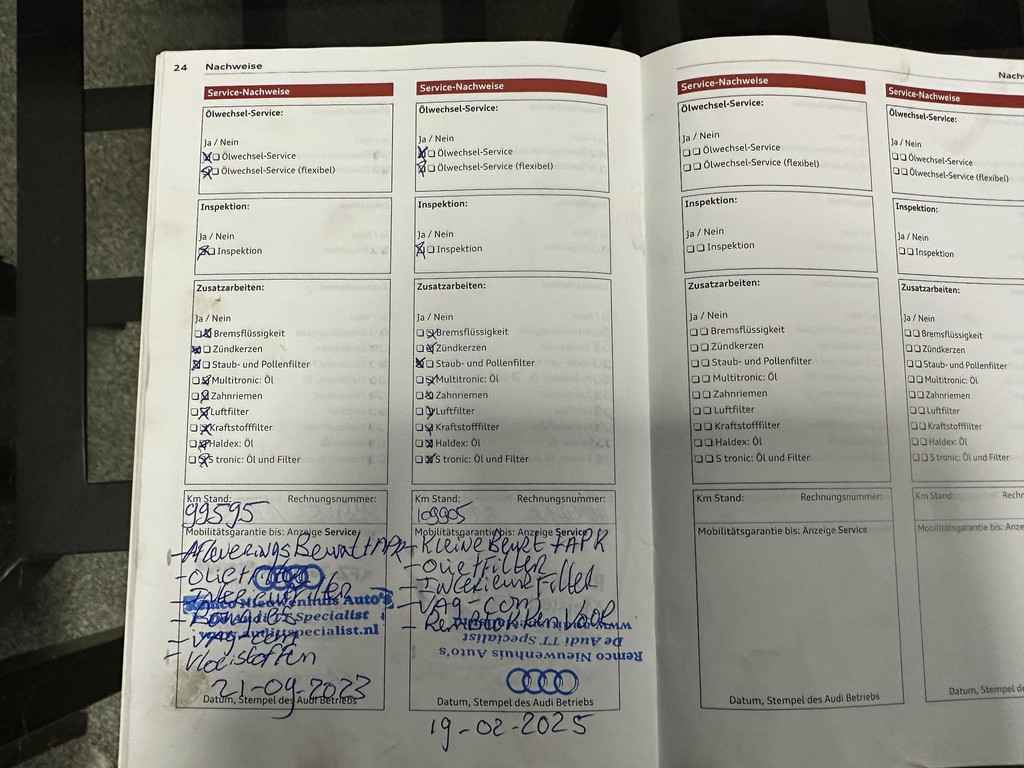 24 Nachweise
Service-Nachweise
Ölwechsel-Service:
Ja / Nein
Ölwechsel-Service
Ölwechsel-Service (flexibel)
Inspektion:
Ja / Nein
Inspektion
Zusatzarbeiten:
Ja / Nein
Bremsflüssigkeit
Zündkerzen
Staub- und Pollenfilter
Multitronic: Öl
Zahnriemen
Luftfilter
Kraftstofffilter
Haldex: Öl
S tronic: Öl und Filter
Km Stand: Rechnungsnummer:
99595
Mobilitätsgarantie bis: Anzeige Service
- Afleverings Beurt + APK
- Olie + Filter
- Interieurfilter
- Bougies
- VAg-com
- Vloeistoffen
Remco Nieuwenhuis Auto's
De Audi TT Specialist
www.auditt-specialist.nl
21-09-2023
Datum, Stempel des Audi Betriebs
Service-Nachweise
Ölwechsel-Service:
Ja / Nein
Ölwechsel-Service
Ölwechsel-Service (flexibel)
Inspektion:
Ja / Nein
Inspektion
Zusatzarbeiten:
Ja / Nein
Bremsflüssigkeit
Zündkerzen
Staub- und Pollenfilter
Multitronic: Öl
Zahnriemen
Luftfilter
Kraftstofffilter
Haldex: Öl
S tronic: Öl und Filter
Km Stand: Rechnungsnummer:
109905
Mobilitätsgarantie bis: Anzeige Service
- Kleine Beurt + APK
- Olie + Filter
- Interieur Filter
- VAg-com
- Remblokken VooR
De Audi TT Specialist
Remco Nieuwenhuis Auto's
Datum, Stempel des Audi Betriebs
19-02-2025
Service-Nachweise
Ölwechsel-Service:
Ja / Nein
Ölwechsel-Service
Ölwechsel-Service (flexibel)
Inspektion:
Ja / Nein
Inspektion
Zusatzarbeiten:
Ja / Nein
Bremsflüssigkeit
Zündkerzen
Staub- und Pollenfilter
Multitronic: Öl
Zahnriemen
Luftfilter
Kraftstofffilter
Haldex: Öl
S tronic: Öl und Filter
Km Stand: Rechnungsnummer:
Mobilitätsgarantie bis: Anzeige Service
Datum, Stempel des Audi Betriebs
Nachw
Service-Nachweise
Ölwechsel-Service:
Ja / Nein
Ölwechsel-Service
Ölwechsel-Service (flexibel)
Inspektion:
Ja / Nein
Inspektion
Zusatzarbeiten:
Ja / Nein
Bremsflüssigkeit
Zündkerzen
Staub- und Pollenfilter
Multitronic: Öl
Zahnriemen
Luftfilter
Kraftstofffilter
Haldex: Öl
S tronic: Öl und Filter
Km Stand: Rechnungsn
Mobilitätsgarantie bis: Anzeige
Datum, Stempel des